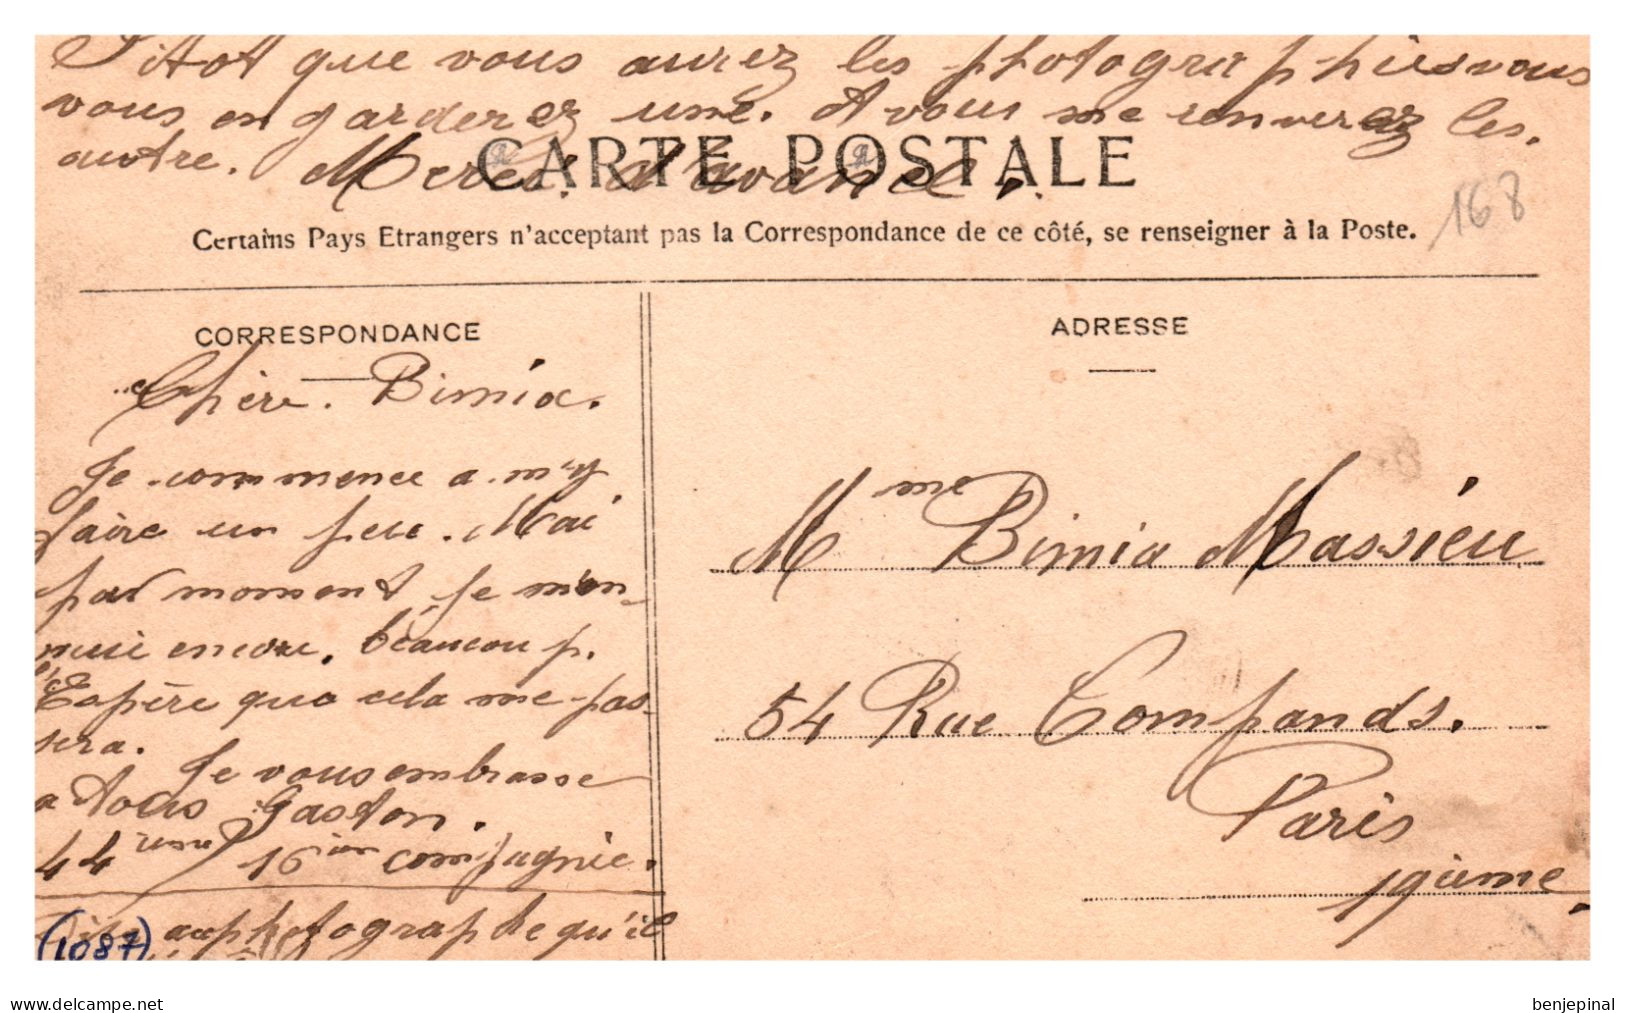 Sitot que vous aurez les photographiesvous
vous en garderez une. A vous me renverez les.
autre. Merci d'avance.
CARTE POSTALE
168
Certains Pays Etrangers n'acceptant pas la Correspondance de ce côté, se renseigner à la Poste.
CORRESPONDANCE
Chère. Bimia.
Je commence a m'y
faire un peu. Mai
par moment je m'en-
nuie encore. beaucoup.
Espère que cela me pas-
sera.
Je vous embrasse
a tous Gaston.
44 ieme 16 ièm compagnie.
au photographe qu'il
(1087)
ADRESSE
Mme Bimia Massieu
54 Rue Compands.
Paris
19ieme.
www.delcampe.net
benjepinal